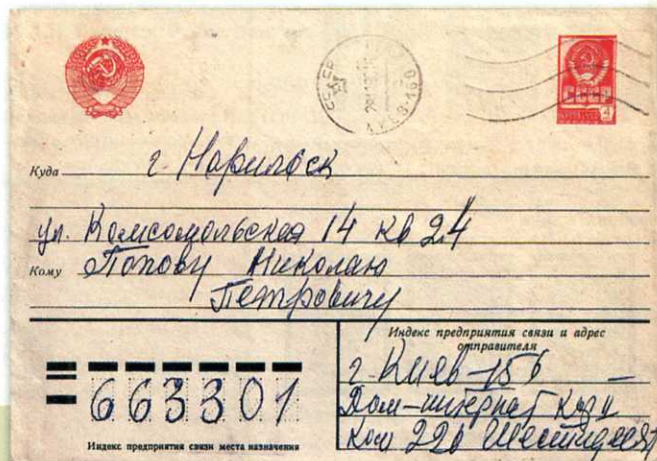 СССР
Куда г. Норильск
ул. Комсомольская 14 кв 24
Кому Попову Николаю
Петровичу
Индекс предприятия связи и адрес
отправителя
г. Киев-156
Дом-интернат
ком 220
663301
Индекс предприятия связи места назначения